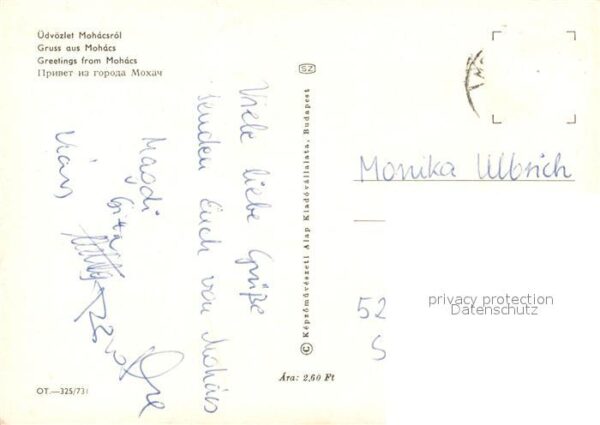 Üdvözlet Mohácsról
Gruss aus Mohács
Greetings from Mohács
Привет из города Мохач
Viele liebe Grüße
senden Euch von Mohács
Magdi
Gitta
SZ
© Képzőművészeti Alap Kiadóvállalata, Budapest
Monika Ulbrich
52
privacy protection
Datenschutz
Ára: 2,60 Ft
OT.—325/731